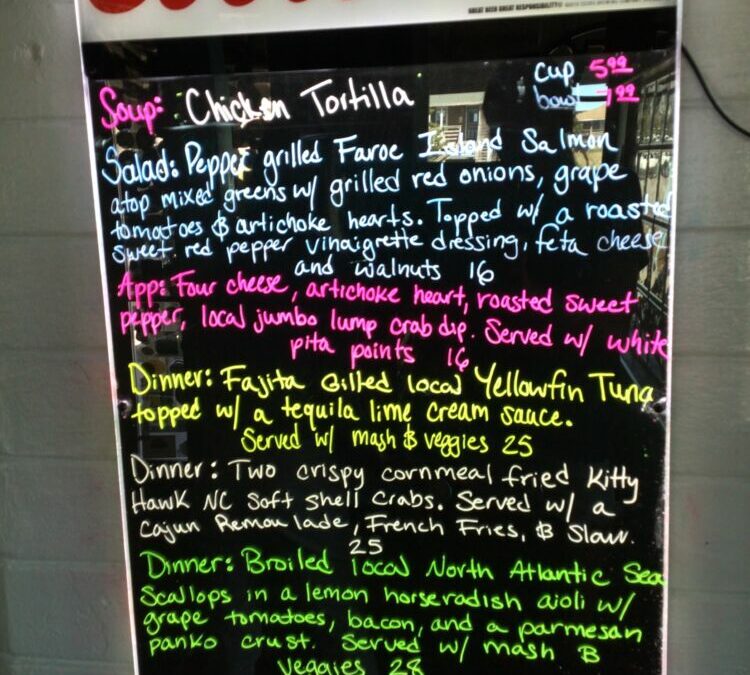 GREAT BEER GREAT RESPONSIBILITY®
Soup: Chicken Tortilla
cup 5.99
bowl 7.99
Salad: Pepper grilled Faroe Island Salmon
atop mixed greens w/ grilled red onions, grape
tomatoes & artichoke hearts. Topped w/ a roasted
sweet red pepper vinaigrette dressing, feta cheese
and walnuts 16
App: Four cheese, artichoke heart, roasted sweet
pepper, local jumbo lump crab dip. Served w/ white
pita points 16
Dinner: Fajita Gilled local Yellowfin Tuna
topped w/ a tequila lime cream sauce.
Served w/ mash & veggies 25
Dinner: Two crispy cornmeal fried Kitty
Hawk NC Soft Shell Crabs. Served w/ a
Cajun Remoulade, French Fries, & Slaw.
25
Dinner: Broiled local North Atlantic Sea
Scallops in a lemon horseradish aioli w/
grape tomatoes, bacon, and a parmesan
panko crust. Served w/ mash &
veggies 28